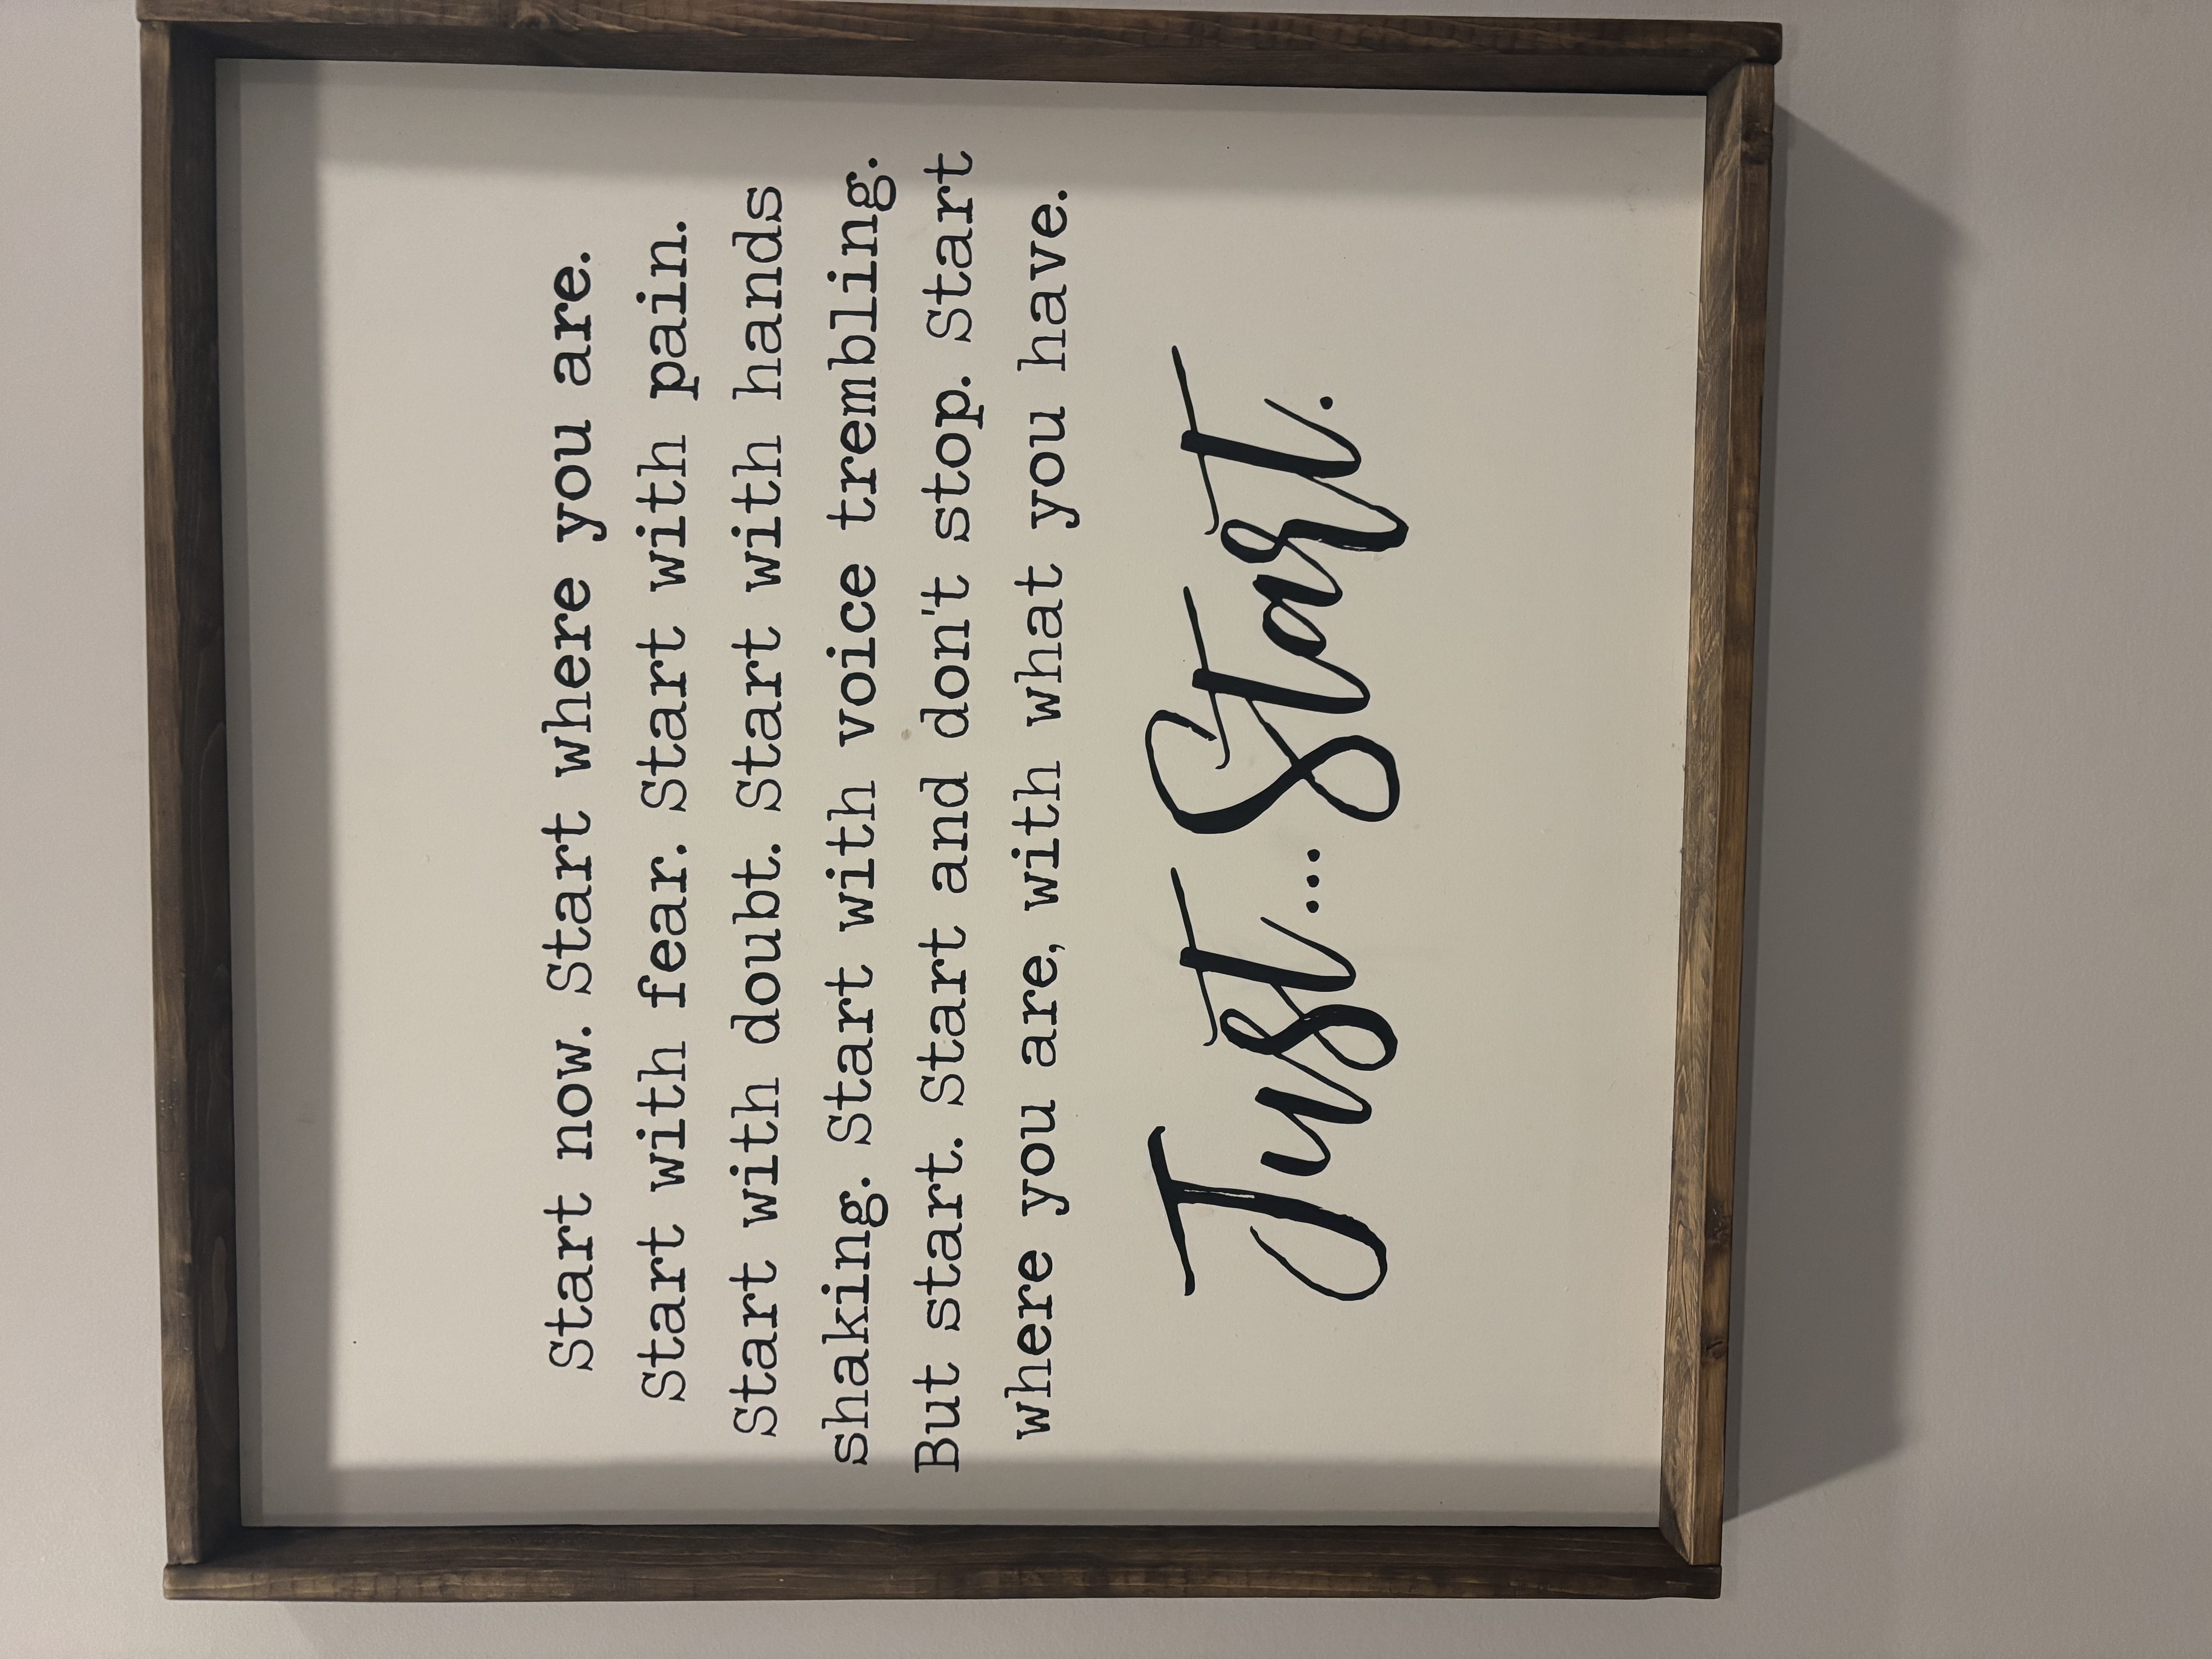 Start now. Start where you are.
Start with fear. Start with pain.
Start with doubt. Start with hands
shaking. Start with voice trembling.
But start. Start and don't stop. Start
where you are, with what you have.
Just... Start.